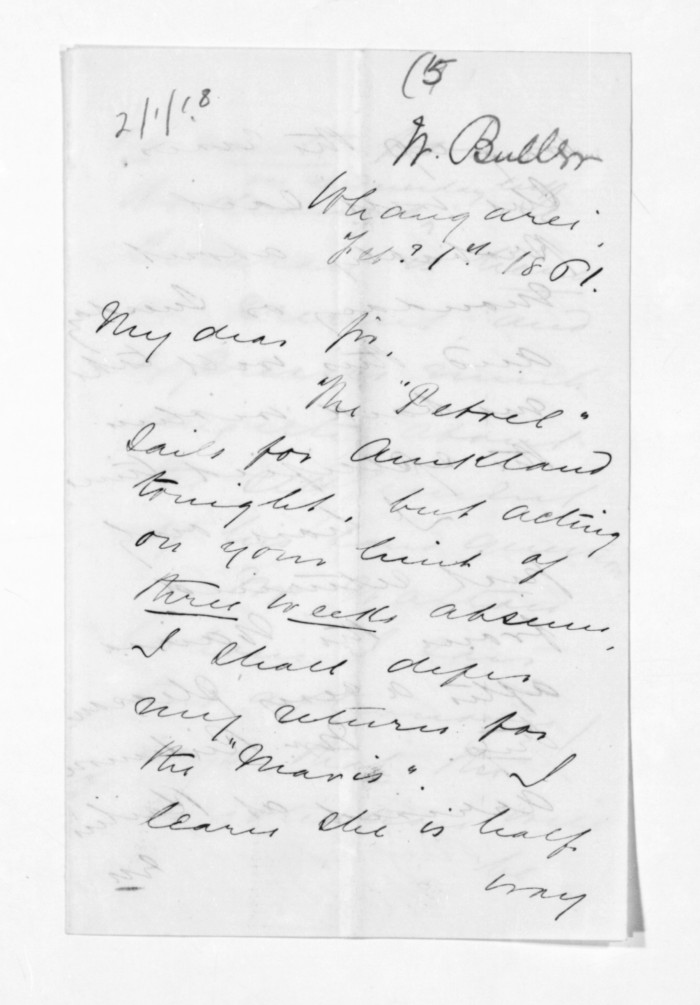 (5
2/1/18
W. Buller
Whangarei,
Feb. 1861.
My dear Sir,
The "Petrel"
Sails for Auckland
tonight, but acting
on your hint of
three weeks absence,
I shall defer
my return for
the "Mavis". I
learn she is half
way